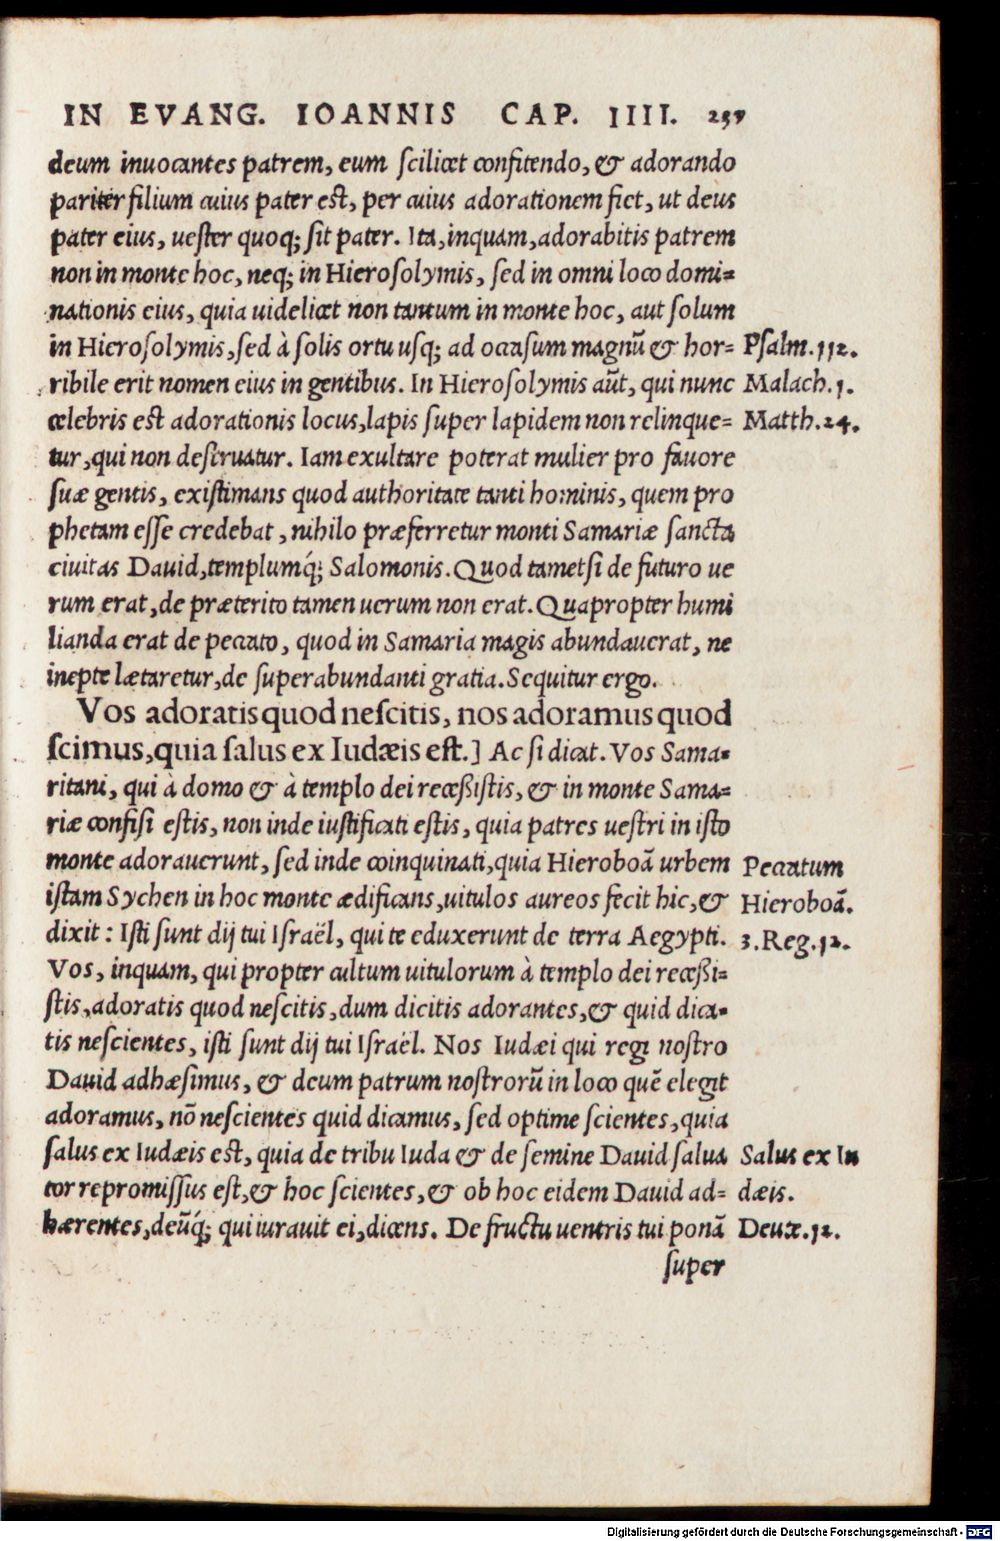 IN EVANG. IOANNIS CAP. IIII. 257
deum inuocantes patrem, eum scilicet confitendo, & adorando
pariter filium cuius pater est, per cuius adorationem fiet, ut deus
pater eius, uester quoq; sit pater. Ita, inquam, adorabitis patrem
non in monte hoc, neq; in Hierosolymis, sed in omni loco domi=
nationis eius, quia uidelicet non tantum in monte hoc, aut solum
in Hierosolymis, sed à solis ortu usq; ad occasum magnũ & hor= Psalm. 112.
ribile erit nomen eius in gentibus. In Hierosolymis aũt, qui nunc Malach. 1.
celebris est adorationis locus, lapis super lapidem non relinque= Matth. 24.
tur, qui non destruatur. Iam exultare poterat mulier pro fauore
suæ gentis, existimans quod authoritate tanti hominis, quem pro
phetam esse credebat, nihilo præferretur monti Samariæ sancta
ciuitas Dauid, templumq́; Salomonis. Quod tametsi de futuro ue
rum erat, de præterito tamen uerum non erat. Quapropter humi
lianda erat de peccato, quod in Samaria magis abundauerat, ne
inepte lætaretur, de superabundanti gratia. Sequitur ergo.
Vos adoratis quod nescitis, nos adoramus quod
scimus, quia salus ex Iudæis est.] Ac si dicat. Vos Sama=
ritani, qui à domo & à templo dei recessistis, & in monte Sama=
riæ confisi estis, non inde iustificati estis, quia patres uestri in isto
monte adorauerunt, sed inde coinquinati, quia Hieroboã urbem Peccatum
istam Sychen in hoc monte ædificans, uitulos aureos fecit hic, & Hieroboã.
dixit: Isti sunt dij tui Israël, qui te eduxerunt de terra Aegypti. 3. Reg. 12.
Vos, inquam, qui propter cultum uitulorum à templo dei recessi=
stis, adoratis quod nescitis, dum dicitis adorantes, & quid dica=
tis nescientes, isti sunt dij tui Israël. Nos Iudæi qui regi nostro
Dauid adhæsimus, & deum patrum nostrorũ in loco quẽ elegit
adoramus, nõ nescientes quid dicamus, sed optime scientes, quia
salus ex Iudæis est, quia de tribu Iuda & de semine Dauid salua Salus ex Iu
tor repromissus est, & hoc scientes, & ob hoc eidem Dauid ad= dæis.
hærentes, deũq́; qui iurauit ei, dicens. De fructu uentris tui ponã Deut. 12.
super
Digitalisierung gefördert durch die Deutsche Forschungsgemeinschaft - DFG